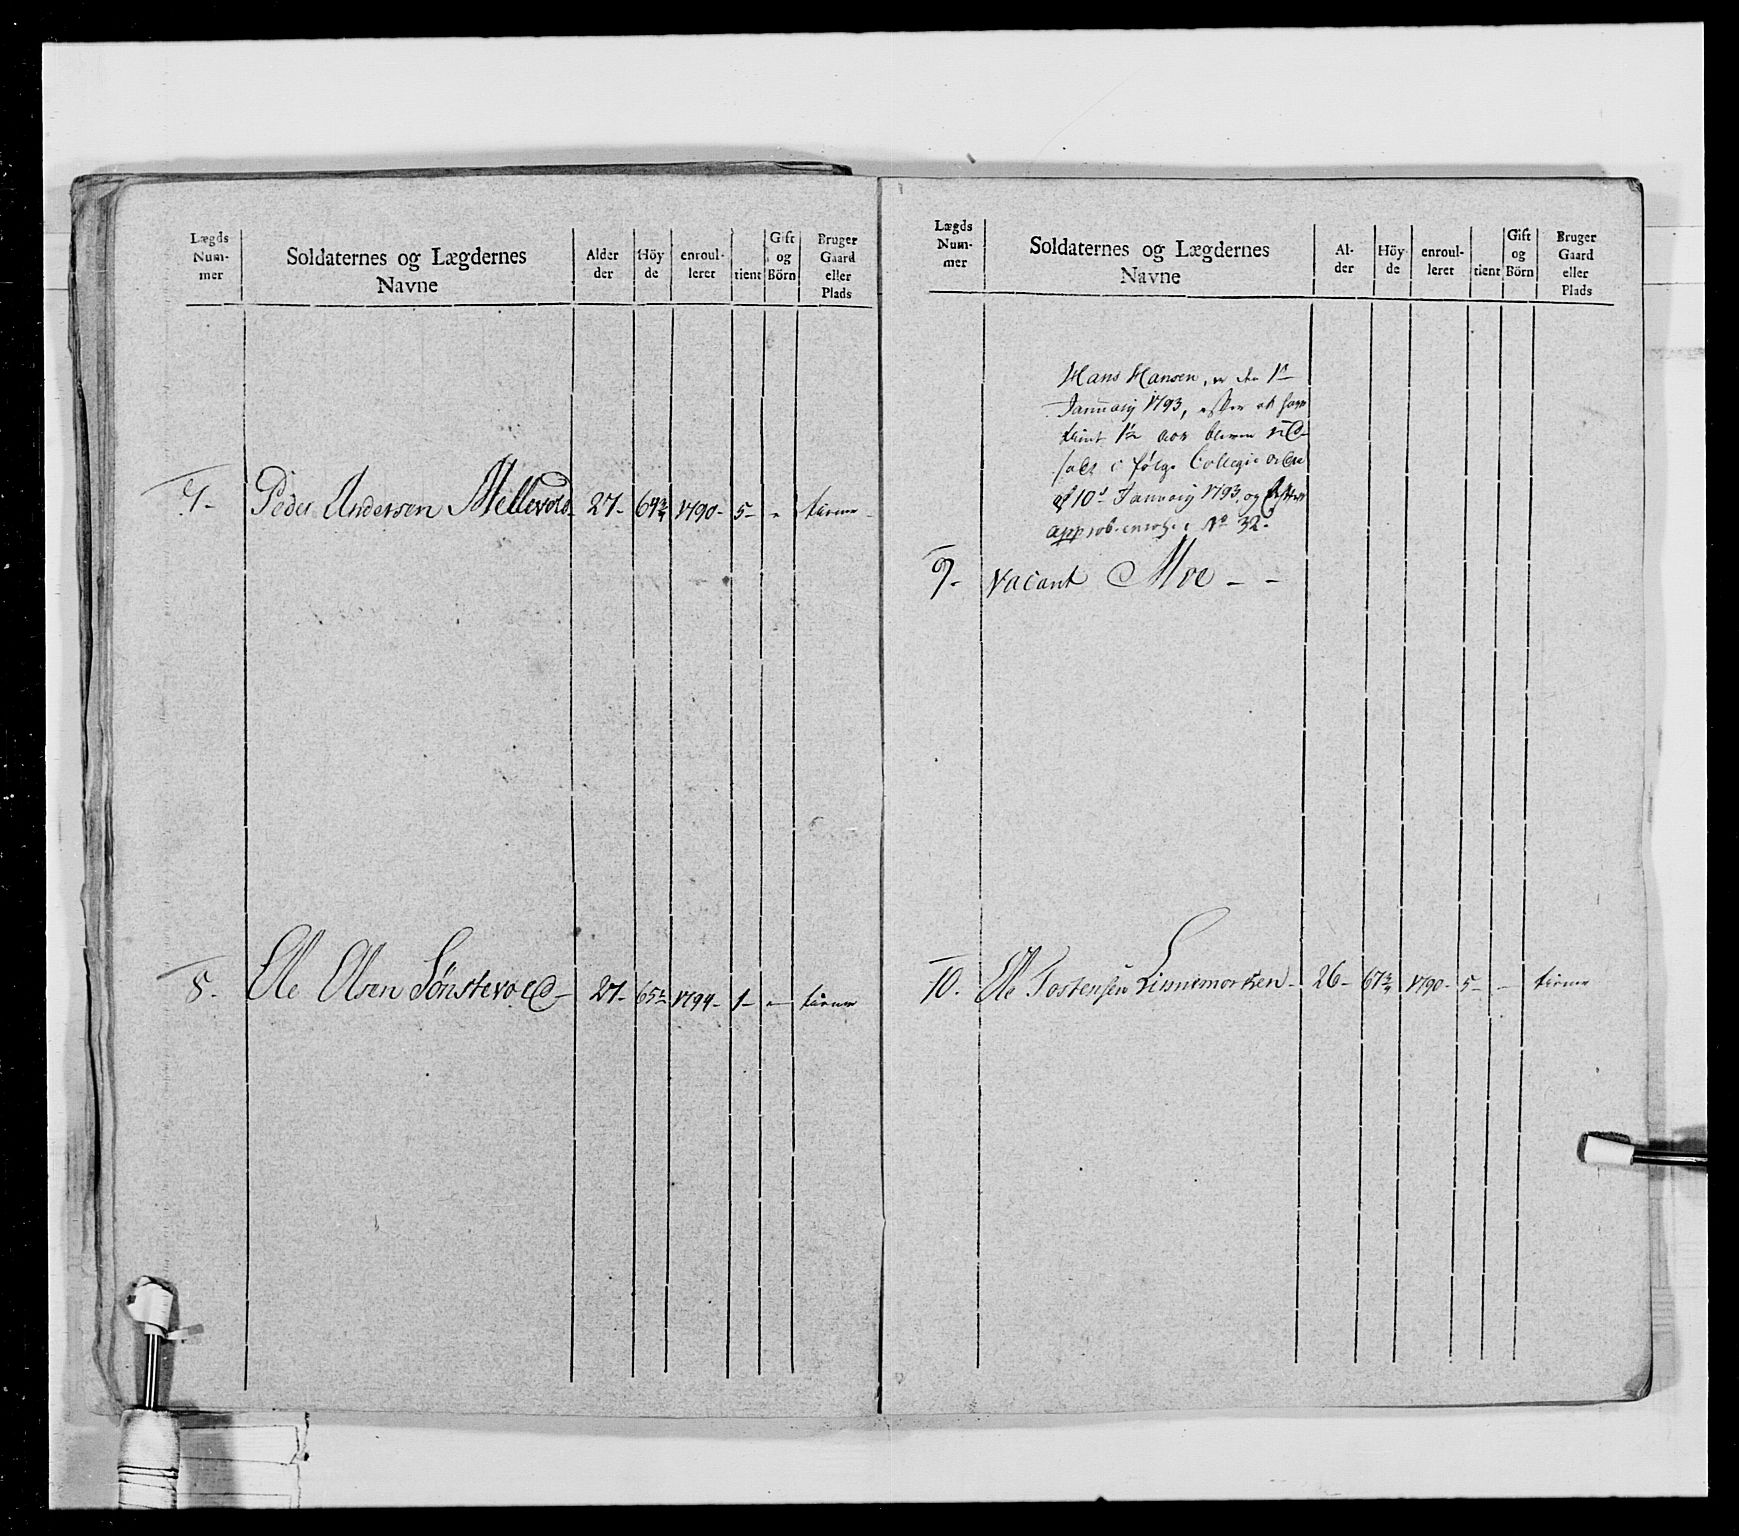 Lægds Num- mer
Soldaternes og Lægdernes Navne
Alder der
Höy de
enroul- leret
tient
Gift og Börn
Bruger Gaard eller Plads
7. Peder Andersen Mellevold 27- 64¾ 1790- 5- - tiener
8. Ole Olsen Sönstevold- 27- 65½ 1794- 1- - tiener
Lægds Num- mer
Soldaternes og Lægdernes Navne
Al- der
Höy- de
enroul- leret
tient
Gift og Börn
Bruger Gaard eller Plads
Hans Hansen, er den 1ste
Januarj 1793, efter at have
tient 1½ aar bleven ud-
sadt i følge Collegie ordre
af 10d Januarj 1793, og
approb: No 32.
9. Vacant Moe - -
10. Ole Tostensen Linnemorken- 26- 67¾ 1790- 5- - tiener